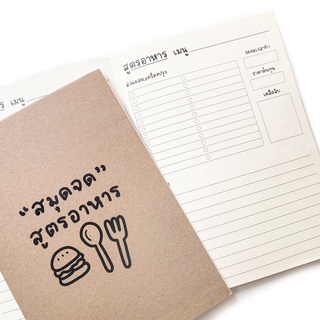 สูตรอาหาร เมนู
ระยะเวลาทำ
ส่วนผสม,เครื่องปรุง
ราคาต้นทุน
เคล็ดลับ
หาร เมนู
“สมุดจด”
สูตรอาหาร